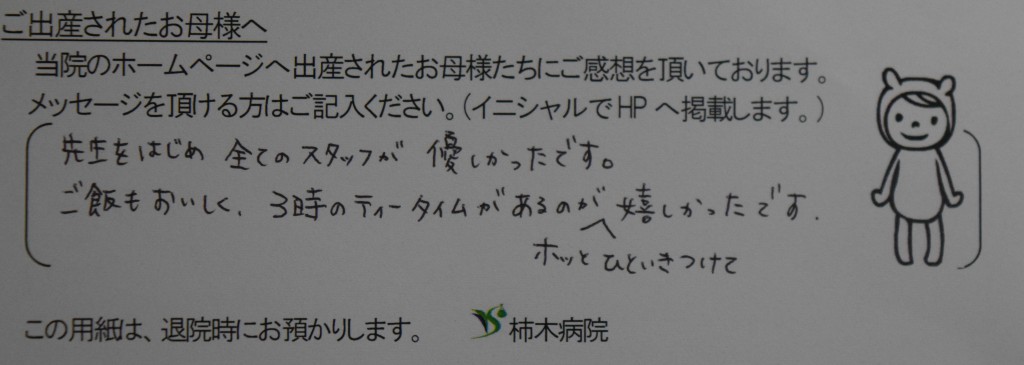 ご出産されたお母様へ
当院のホームページへ出産されたお母様たちにご感想を頂いております。
メッセージを頂ける方はご記入ください。（イニシャルでHPへ掲載します。）
先生をはじめ 全てのスタッフが 優しかったです。
ご飯もおいしく、3時のティータイムがあるのが嬉しかったです.
ホッとひといきつけて
この用紙は、退院時にお預かりします。 柿木病院